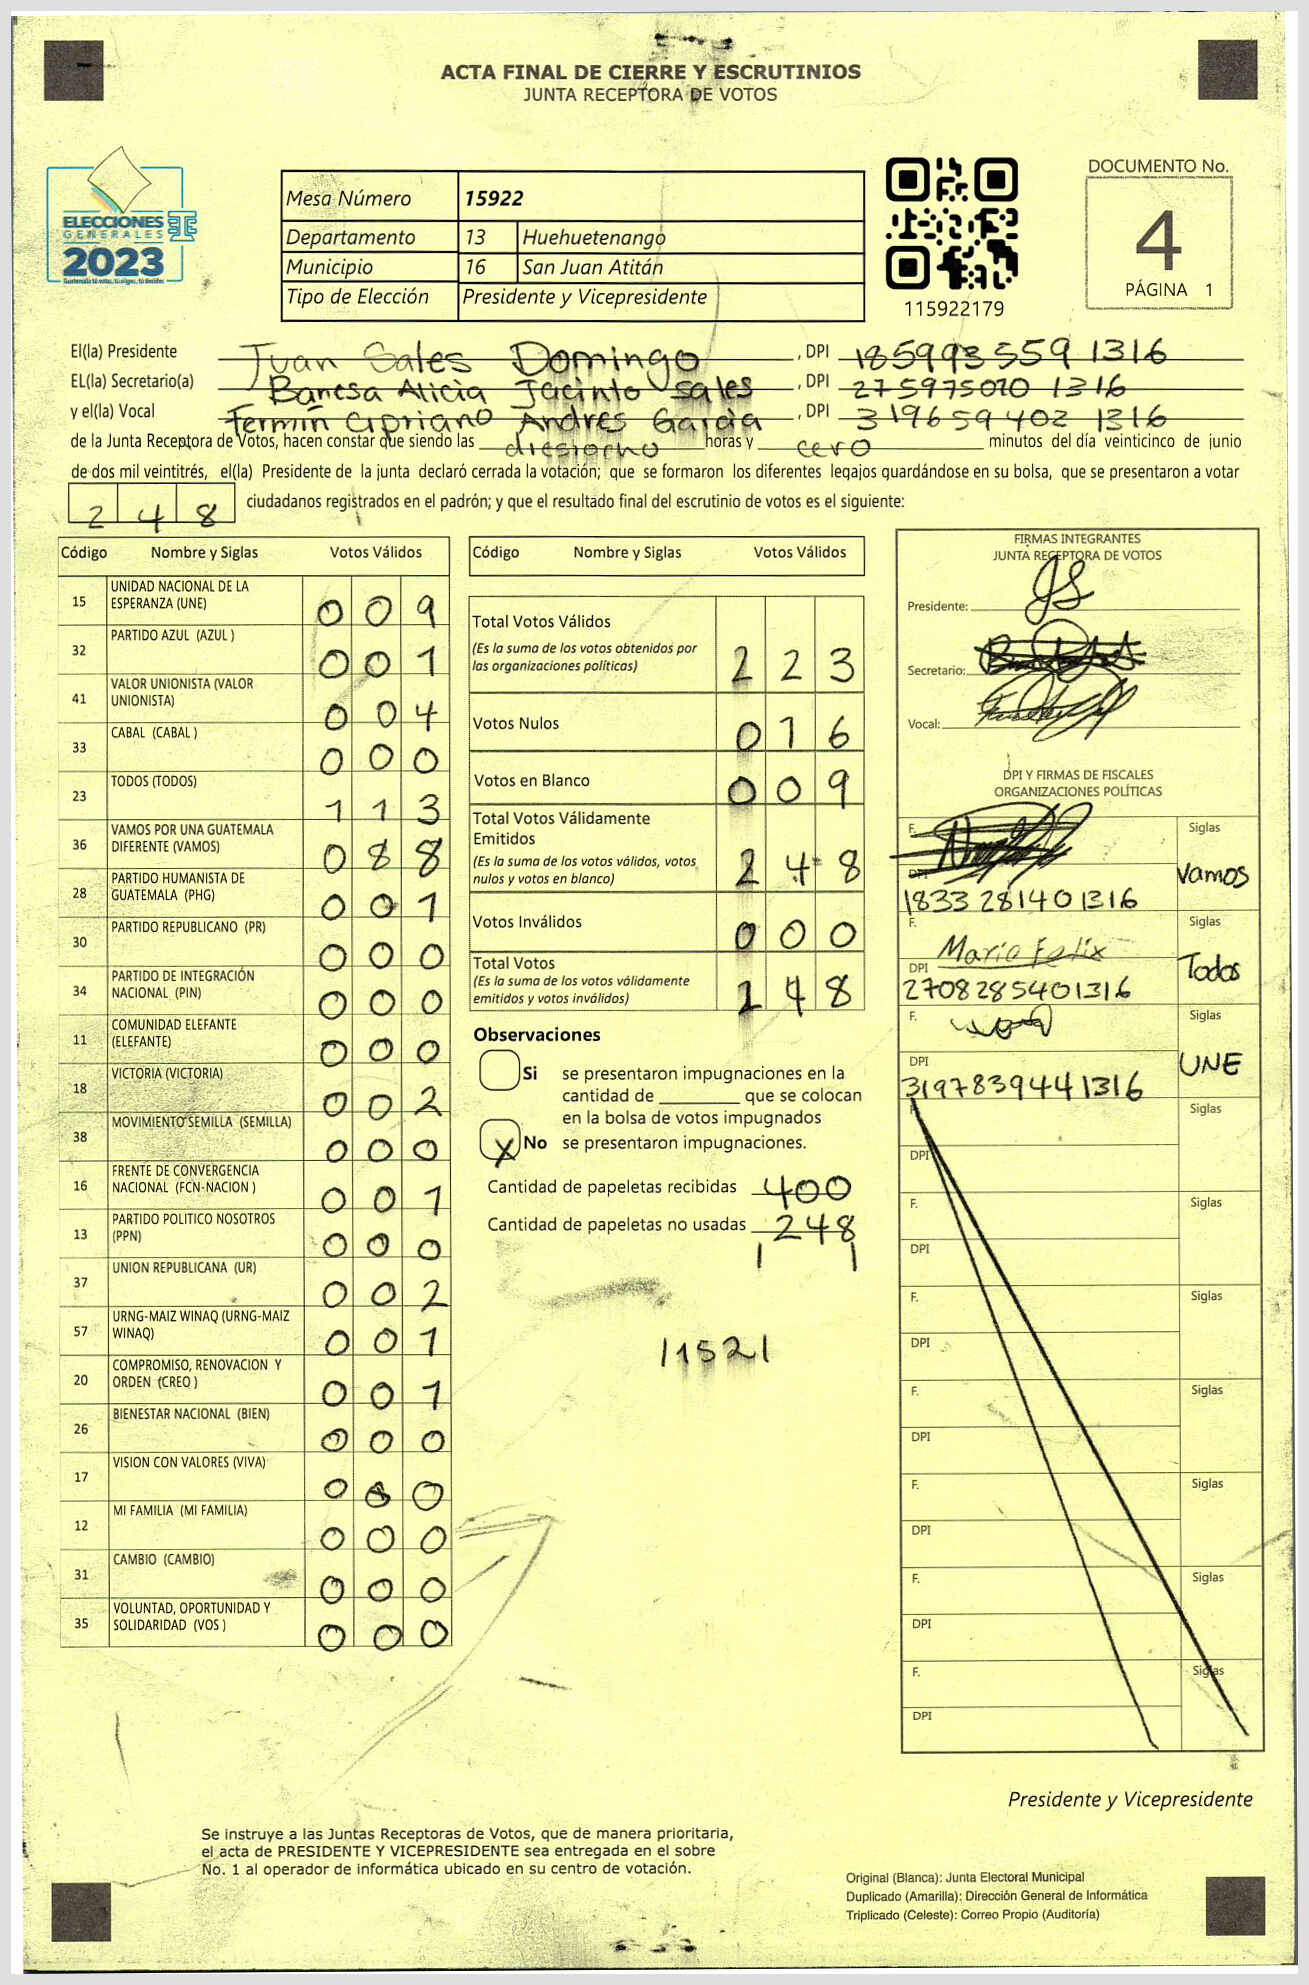 ACTA FINAL DE CIERRE Y ESCRUTINIOS
JUNTA RECEPTORA DE VOTOS
ELECCIONES
GENERALES
2023
Mesa Número 15922
Departamento 13 Huehuetenango
Municipio 16 San Juan Atitán
Tipo de Elección Presidente y Vicepresidente
115922179
DOCUMENTO No.
4
PÁGINA 1
El(la) Presidente Juan Sales Domingo , DPI 185993559 1316
EL(la) Secretario(a) Banesa Alicia Jacinto Sales , DPI 275975020 1316
y el(la) Vocal Fermin Cipriano Andres Garcia , DPI 319659402 1316
de la Junta Receptora de Votos, hacen constar que siendo las diesiocho horas y cero minutos del día veinticinco de junio
de dos mil veintitrés, el(la) Presidente de la junta declaró cerrada la votación; que se formaron los diferentes legajos guardándose en su bolsa, que se presentaron a votar
248 ciudadanos registrados en el padrón; y que el resultado final del escrutinio de votos es el siguiente:
Código Nombre y Siglas Votos Válidos
15 UNIDAD NACIONAL DE LA
ESPERANZA (UNE) 009
32 PARTIDO AZUL (AZUL ) 001
41 VALOR UNIONISTA (VALOR
UNIONISTA) 004
33 CABAL (CABAL ) 000
23 TODOS (TODOS) 113
36 VAMOS POR UNA GUATEMALA
DIFERENTE (VAMOS) 088
28 PARTIDO HUMANISTA DE
GUATEMALA (PHG) 001
30 PARTIDO REPUBLICANO (PR) 000
34 PARTIDO DE INTEGRACIÓN
NACIONAL (PIN) 000
11 COMUNIDAD ELEFANTE
(ELEFANTE) 000
18 VICTORIA (VICTORIA) 002
38 MOVIMIENTO SEMILLA (SEMILLA) 000
16 FRENTE DE CONVERGENCIA
NACIONAL (FCN-NACION ) 001
13 PARTIDO POLITICO NOSOTROS
(PPN) 000
37 UNION REPUBLICANA (UR) 002
57 URNG-MAIZ WINAQ (URNG-MAIZ
WINAQ) 001
20 COMPROMISO, RENOVACION Y
ORDEN (CREO ) 001
26 BIENESTAR NACIONAL (BIEN) 000
17 VISION CON VALORES (VIVA) 000
12 MI FAMILIA (MI FAMILIA) 000
31 CAMBIO (CAMBIO) 000
35 VOLUNTAD, OPORTUNIDAD Y
SOLIDARIDAD (VOS ) 000
Código Nombre y Siglas Votos Válidos
Total Votos Válidos
(Es la suma de los votos obtenidos por
las organizaciones políticas) 223
Votos Nulos 016
Votos en Blanco 009
Total Votos Válidamente
Emitidos
(Es la suma de los votos válidos, votos
nulos y votos en blanco) 248
Votos Inválidos 000
Total Votos
(Es la suma de los votos válidamente
emitidos y votos inválidos) 248
Observaciones
Si se presentaron impugnaciones en la
cantidad de ________ que se colocan
en la bolsa de votos impugnados
X No se presentaron impugnaciones.
Cantidad de papeletas recibidas 400
Cantidad de papeletas no usadas 248
|152|
FIRMAS INTEGRANTES
JUNTA RECEPTORA DE VOTOS
Presidente: JS
Secretario:
Vocal:
DPI Y FIRMAS DE FISCALES
ORGANIZACIONES POLÍTICAS
F. Siglas
DPI Vamos
1833 281401316
F. Mario Felix Siglas
DPI Todos
2708285401316
F. Siglas
DPI UNE
3197839441316
F. Siglas
DPI
F. Siglas
DPI
F. Siglas
DPI
F. Siglas
DPI
F. Siglas
DPI
F. Siglas
DPI
F. Siglas
DPI
Presidente y Vicepresidente
Se instruye a las Juntas Receptoras de Votos, que de manera prioritaria,
el acta de PRESIDENTE Y VICEPRESIDENTE sea entregada en el sobre
No. 1 al operador de informática ubicado en su centro de votación.
Original (Blanca): Junta Electoral Municipal
Duplicado (Amarilla): Dirección General de Informática
Triplicado (Celeste): Correo Propio (Auditoría)